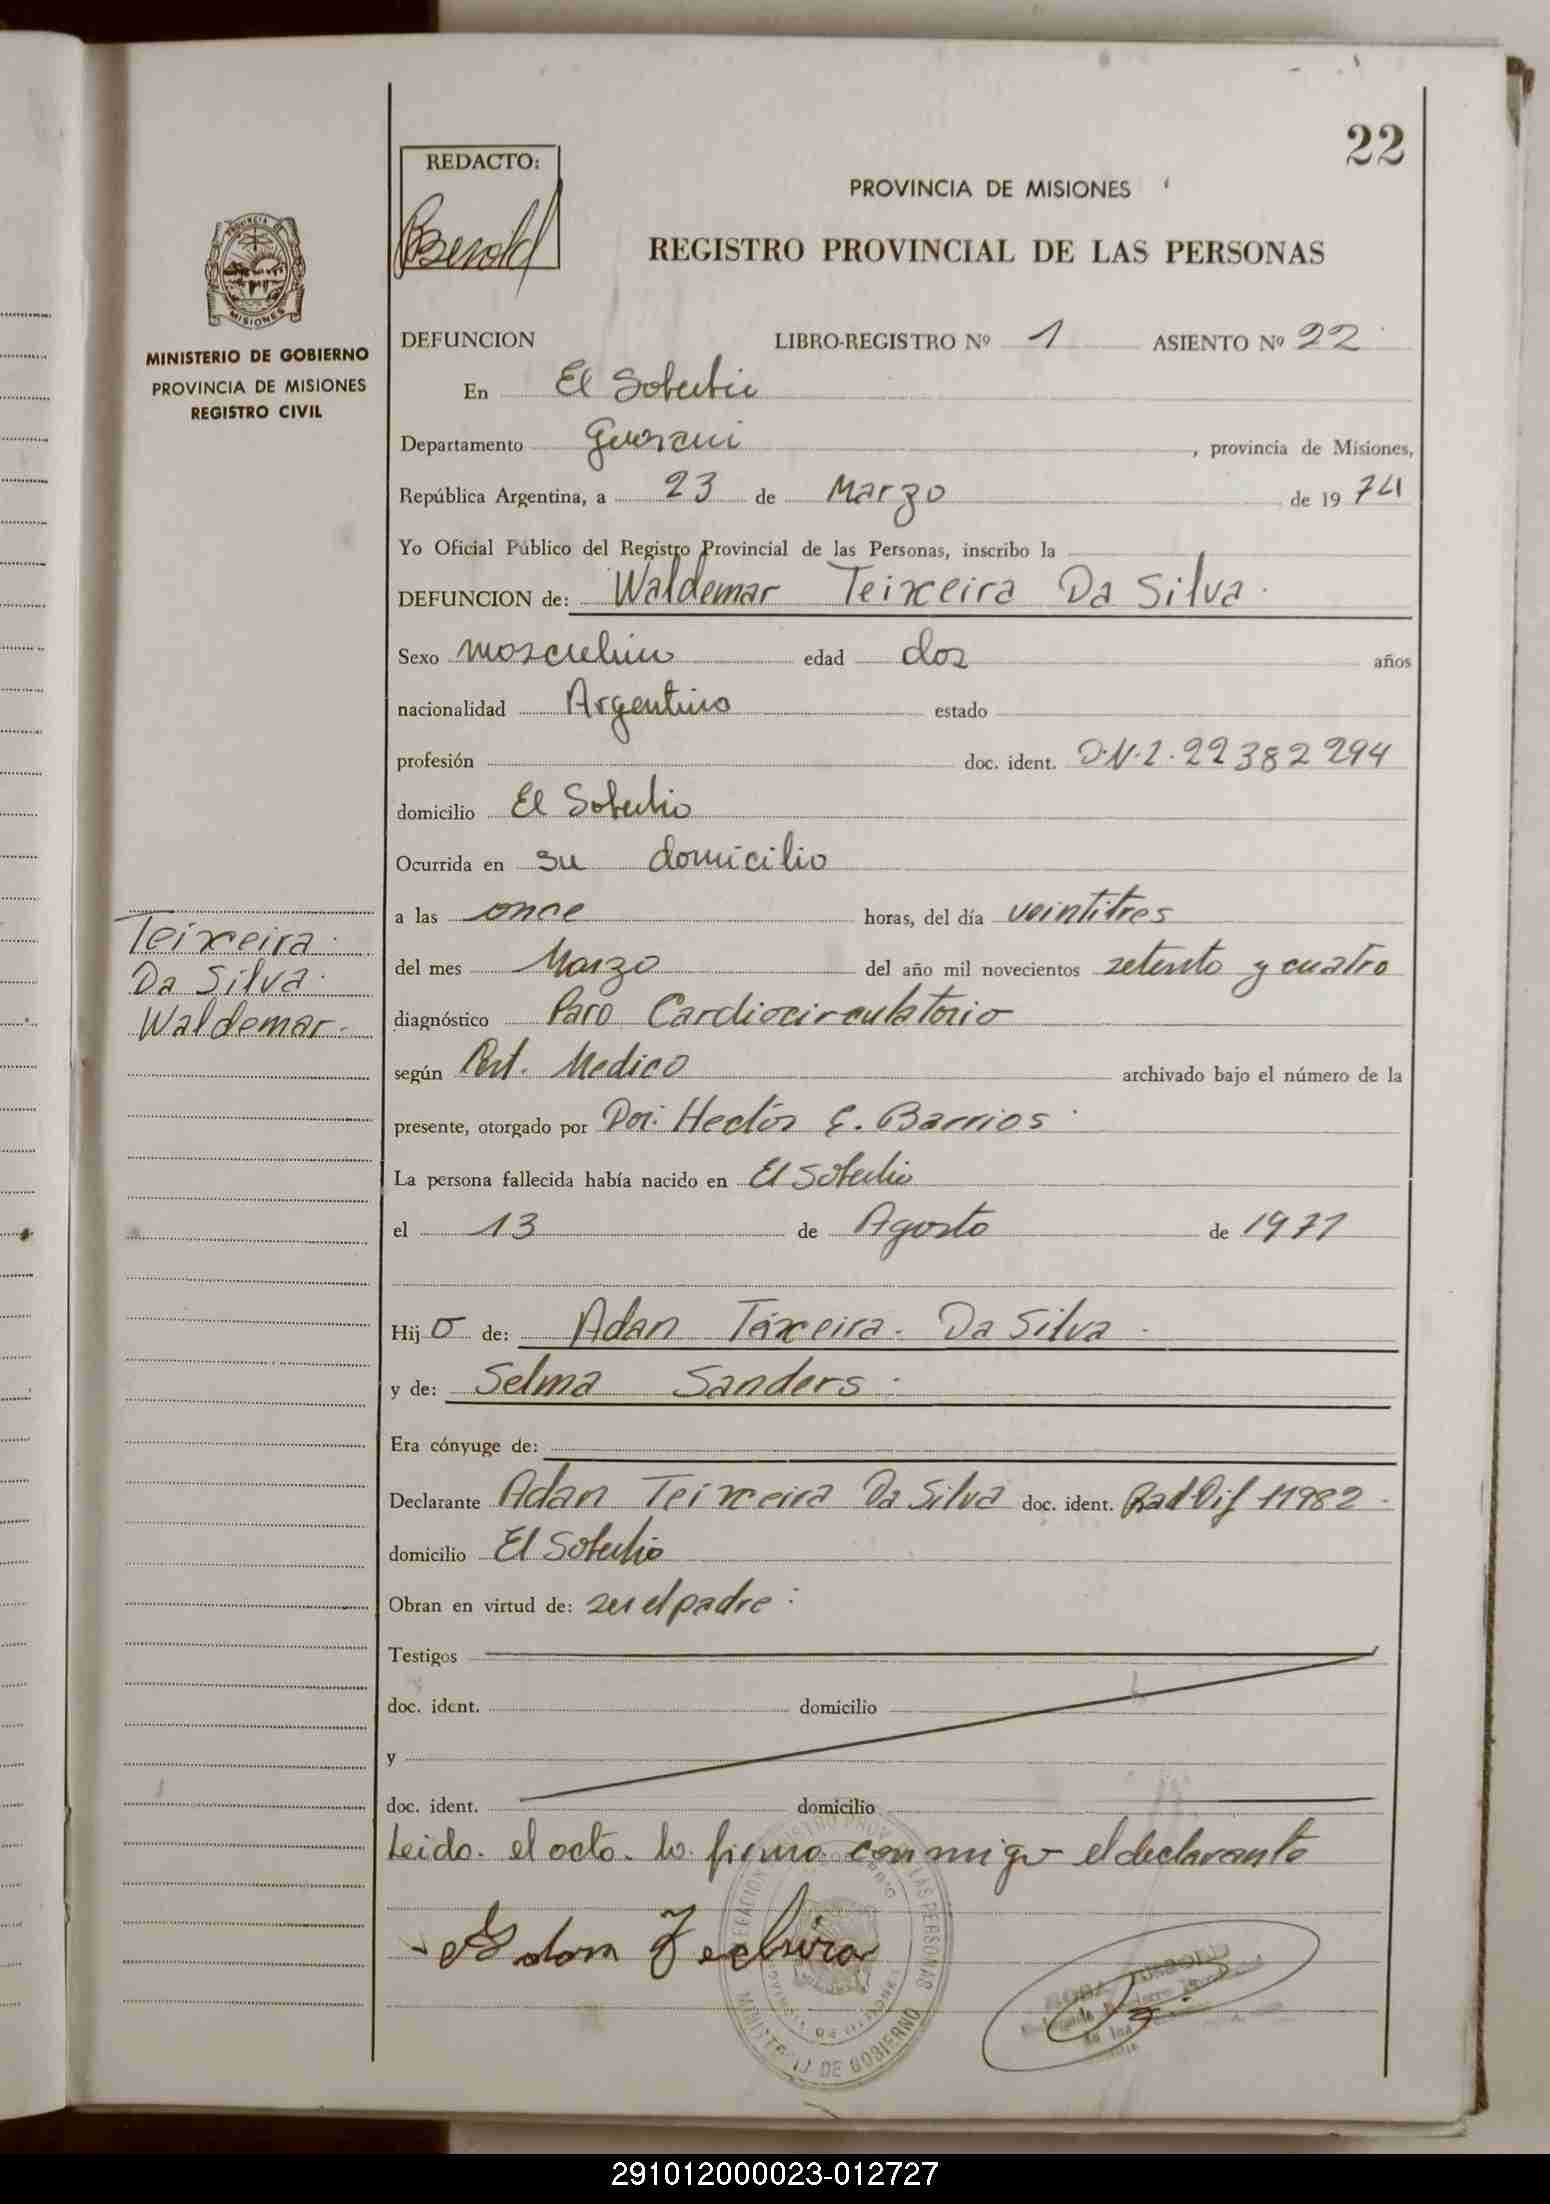 22
REDACTO:
PROVINCIA DE MISIONES
REGISTRO PROVINCIAL DE LAS PERSONAS
MISIONES
MINISTERIO DE GOBIERNO
PROVINCIA DE MISIONES
REGISTRO CIVIL
DEFUNCION LIBRO-REGISTRO Nº 1 ASIENTO Nº 22
En El Soberbio
Departamento Guarani, provincia de Misiones,
República Argentina, a 23 de Marzo de 1974
Yo Oficial Público del Registro Provincial de las Personas, inscribo la
DEFUNCION de: Waldemar Teixeira Da Silva.
Sexo masculino edad dos años
nacionalidad Argentino estado
profesión doc. ident. D.N.I. 22382294
domicilio El Soberbio
Ocurrida en su domicilio
a las once horas, del día veintitres
del mes Marzo del año mil novecientos setenta y cuatro
diagnóstico Paro Cardiocirculatorio
según Cert. Medico archivado bajo el número de la
presente, otorgado por Dor. Hector E. Barrios
La persona fallecida había nacido en El Soberbio
el 13 de Agosto de 1971
Hijo de: Adan Teixeira Da Silva
y de: Selma Sanders
Era cónyuge de:
Declarante Adan Teixeira Da Silva doc. ident. Rad Dif 11982
domicilio El Soberbio
Obran en virtud de: ser el padre
Testigos
doc. ident. domicilio
y
doc. ident. domicilio
Leido el acta lo firma conmigo el declarante
Teixeira
Da Silva
Waldemar
MINISTERIO DE GOBIERNO
291012000023-012727